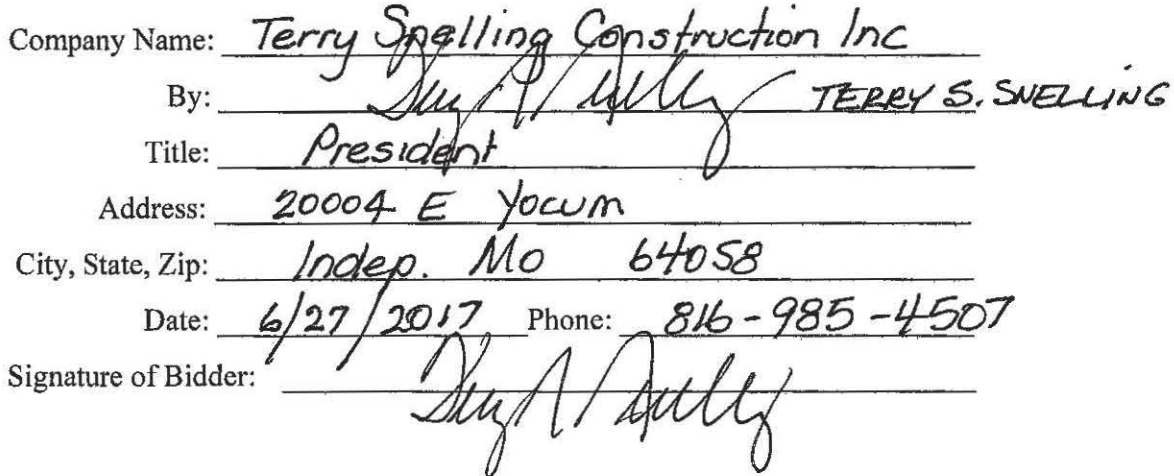 Company Name: Terry Snelling Construction Inc
By: TERRY S. SNELLING
Title: President
Address: 20004 E Yocum
City, State, Zip: Indep. Mo 64058
Date: 6/27/2017 Phone: 816-985-4507
Signature of Bidder: